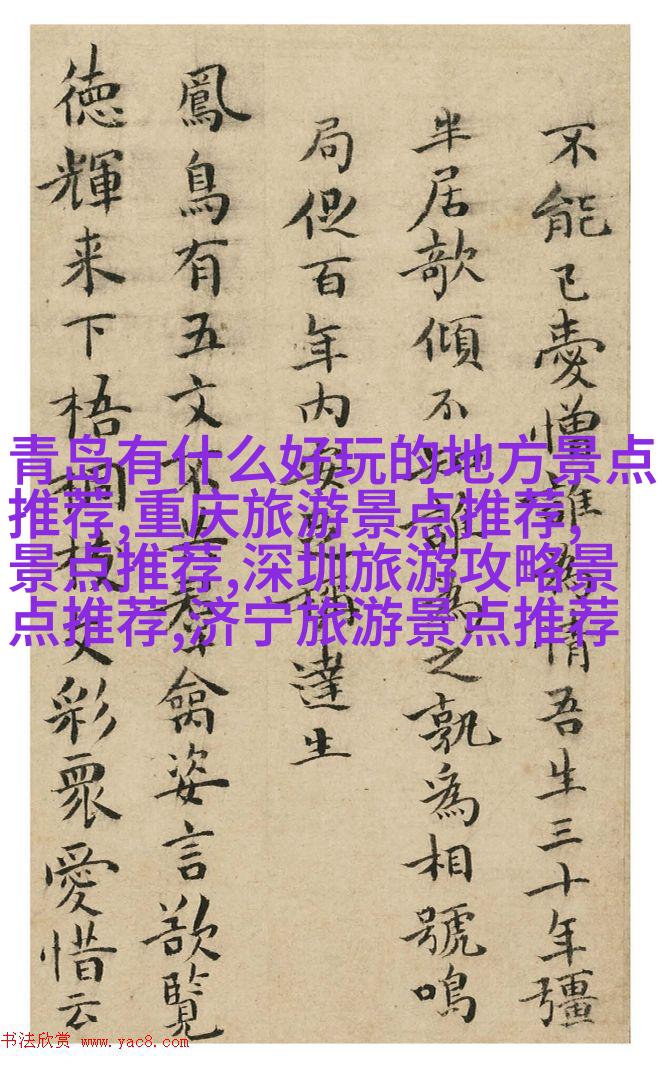 不能已憂憎誰為情吾生三十年彊
半居欹傾不誰為之孰為相號鳴
局促百年内安稱達生
鳳鳥有五文不禽姿言欲覽
徳輝来下梧桐枝文彩眾愛惜云
青岛有什么好玩的地方景点
推荐,重庆旅游景点推荐,
景点推荐,深圳旅游攻略景
点推荐,济宁旅游景点推荐
书法欣赏 www.yac8.com